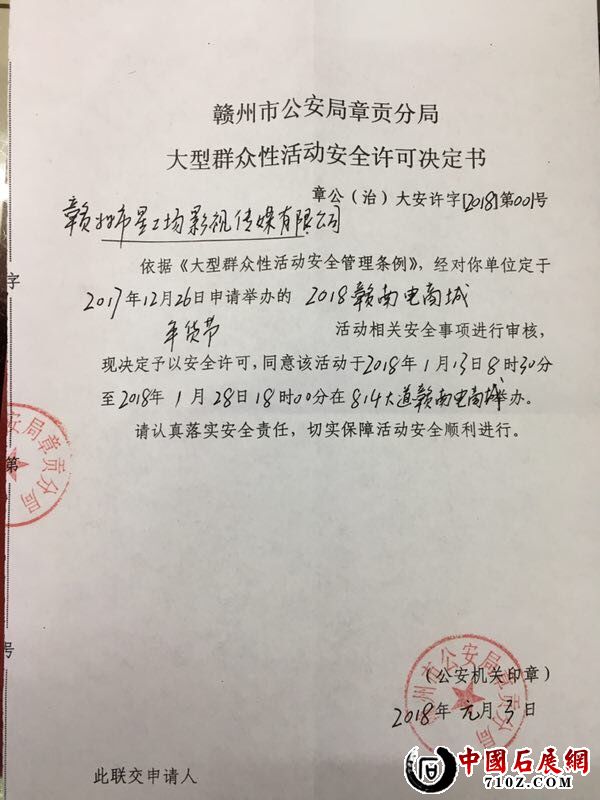 赣州市公安局章贡分局
大型群众性活动安全许可决定书
章公（治）大安许字[2018]第001号
赣州市星工场影视传媒有限公司
依据《大型群众性活动安全管理条例》，经对你单位定于
2017年12月26日申请举办的 2018赣南电商城
年货节 活动相关安全事项进行审核，
现决定予以安全许可，同意该活动于2018年1月13日8时30分
至2018年1月28日18时00分在814大道赣南电商城举办。
请认真落实安全责任，切实保障活动安全顺利进行。
字
第
号
公安局章贡分局
赣州市公安局章贡分局
（公安机关印章）
2018年元月3日
此联交申请人
中國石展網
7102.COM